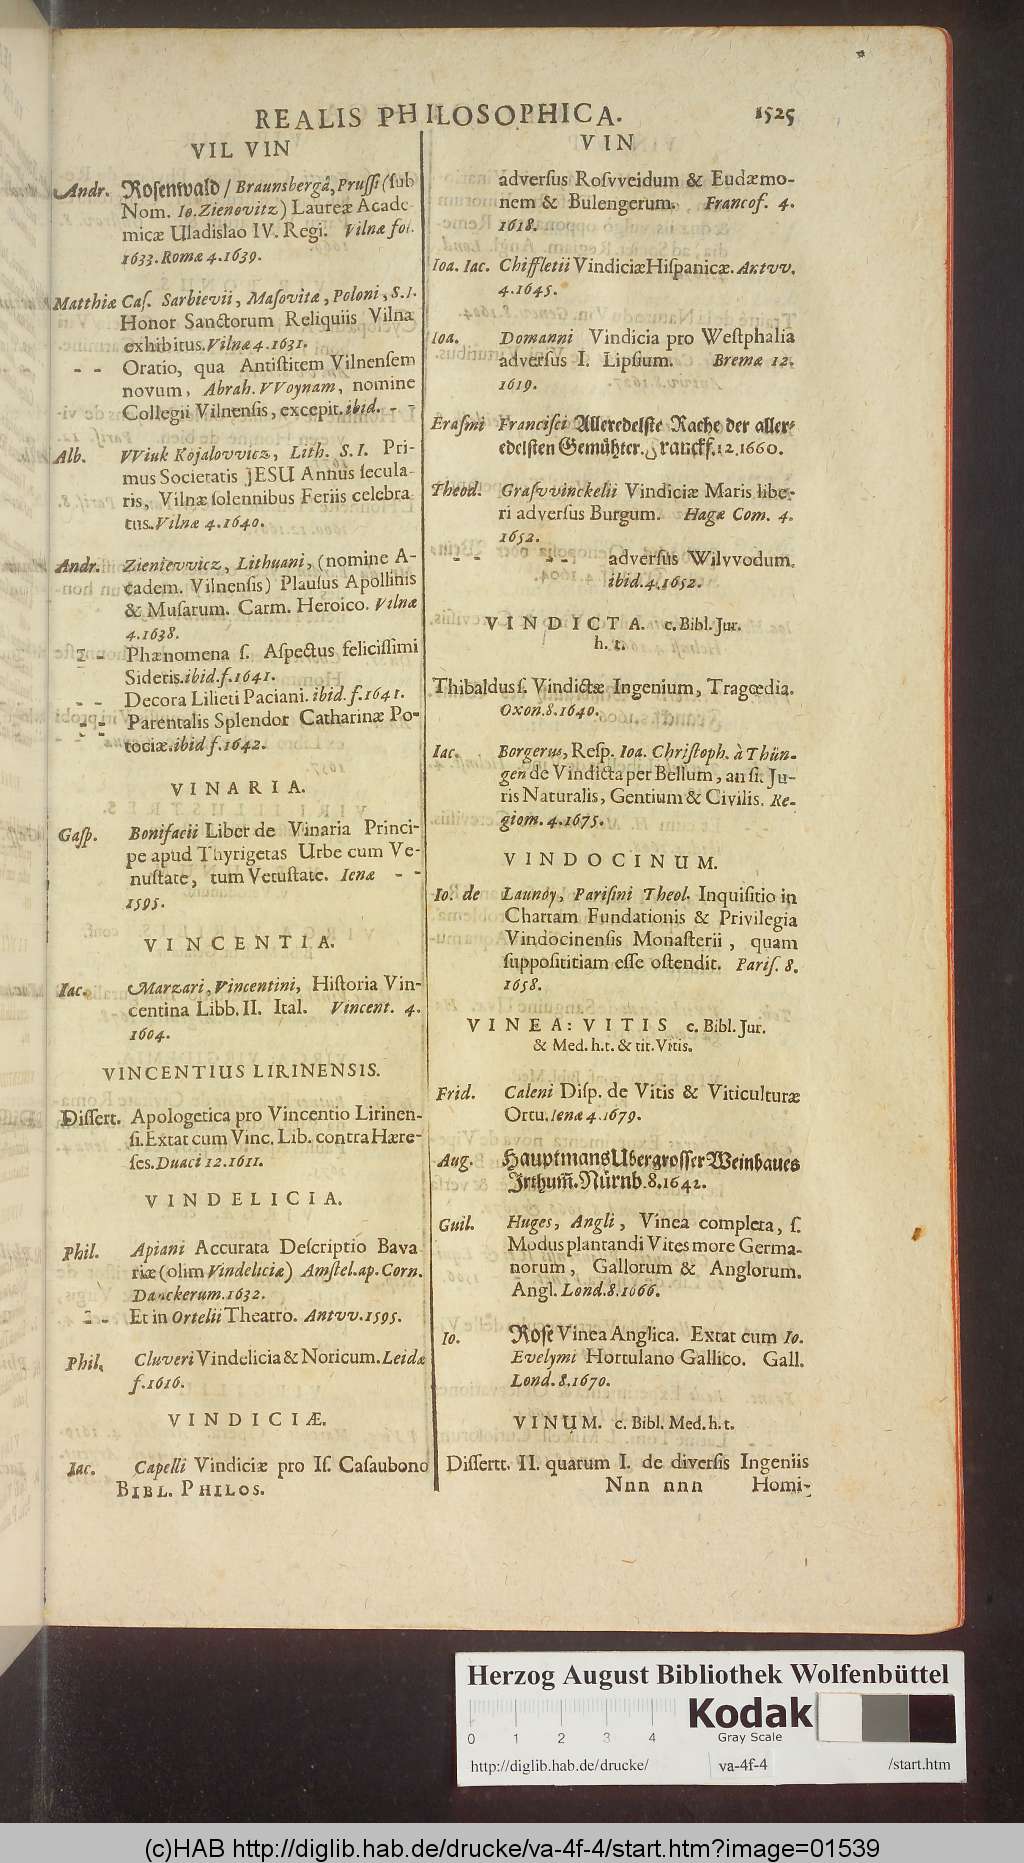 REALIS PHILOSOPHICA. 1525
VIL VIN
Andr. Rosenwald / Braunsbergâ, Prussi (sub
Nom. Io. Zienovitz) Laureæ Acade-
micæ Uladislao IV. Regi. Vilnæ fol.
1633. Romæ 4. 1639.
Matthiæ Cas. Sarbievii, Masovitæ, Poloni, S.I.
Honor Sanctorum Reliquiis Vilnæ
exhibitus. Vilnæ 4. 1631.
- - Oratio, qua Antistitem Vilnensem
novum, Abrah. VVoynam, nomine
Collegii Vilnensis, excepit. ibid. - -
Alb. VViuk Kojalovvicz, Lith. S. I. Pri-
mus Societatis JESU Annus secula-
ris, Vilnæ solennibus Feriis celebra
tus. Vilnæ 4. 1640.
Andr. Zienievvicz, Lithuani, (nomine A-
cadem. Vilnensis) Plausus Apollinis
& Musarum. Carm. Heroico. Vilnæ
4. 1638.
- - Phænomena s. Aspectus felicissimi
Sideris. ibid. f. 1641.
- - Decora Lilieti Paciani. ibid. f. 1641.
- - Parentalis Splendor Catharinæ Po-
tociæ. ibid f. 1642.
VINARIA.
Gasp. Bonifacii Liber de Vinaria Princi-
pe apud Thyrigetas Urbe cum Ve-
nustate, tum Vetustate. Ienæ - -
1595.
VINCENTIA.
Iac. Marzari, Vincentini, Historia Vin-
centina Libb. II. Ital. Vincent. 4.
1604.
VINCENTIUS LIRINENSIS.
Dissert. Apologetica pro Vincentio Lirinen-
si. Extat cum Vinc. Lib. contra Hære-
ses. Duaci 12. 1611.
VINDELICIA.
Phil. Apiani Accurata Descriptio Bava
riæ (olim Vindeliciæ) Amstel. ap. Corn.
Danckerum. 1632.
- - Et in Ortelii Theatro. Antvv. 1595.
Phil. Cluveri Vindelicia & Noricum. Leidæ
f. 1616.
VINDICIÆ.
Iac. Capelli Vindiciæ pro Is. Casaubono
BIBL. PHILOS.
VIN
adversus Rosvveidum & Eudæmo-
nem & Bulengerum. Francof. 4.
1618.
Ioa. Iac. Chiffletii Vindiciæ Hispanicæ. Antvv.
4. 1645.
Ioa. Domanni Vindicia pro Westphalia
adversus I. Lipsium. Bremæ 12.
1619.
Erasmi Francisci Alleredelste Rache der aller-
edelsten Gemühter. Franckf. 12. 1660.
Theod. Grasvvinckelii Vindiciæ Maris libe-
ri adversus Burgum. Hagæ Com. 4.
1652.
- - - - adversus Wilvvodum.
ibid. 4. 1652.
VINDICTA. c. Bibl. Jur.
h. t.
Thibaldus s. Vindictæ Ingenium, Tragœdia.
Oxon. 8. 1640.
Iac. Borgerus, Resp. Ioa. Christoph. à Thün-
gen de Vindicta per Bellum, an si. Ju-
ris Naturalis, Gentium & Civilis. Re-
giom. 4. 1675.
VINDOCINUM.
Io. de Launoy, Parisini Theol. Inquisitio in
Chartam Fundationis & Privilegia
Vindocinensis Monasterii, quam
supposititiam esse ostendit. Paris. 8.
1658.
VINEA: VITIS c. Bibl. Jur.
& Med. h. t. & tit. Vitis.
Frid. Caleni Disp. de Vitis & Viticulturæ
Ortu. Ienæ 4. 1679.
Aug. Hauptmans Ubergrosser Weinbaues
Irthum̃. Nürnb. 8. 1642.
Guil. Huges, Angli, Vinea completa, s.
Modus plantandi Vites more Germa-
norum, Gallorum & Anglorum.
Angl. Lond. 8. 1666.
Io. Rose Vinea Anglica. Extat cum Io.
Evelymi Hortulano Gallico. Gall.
Lond. 8. 1670.
VINUM. c. Bibl. Med. h. t.
Dissertt. II. quarum I. de diversis Ingeniis
Nnn nnn Homi-
Herzog August Bibliothek Wolfenbüttel
0 1 2 3 4
Kodak
Gray Scale
http://diglib.hab.de/drucke/ va-4f-4 /start.htm
(c)HAB http://diglib.hab.de/drucke/va-4f-4/start.htm?image=01539